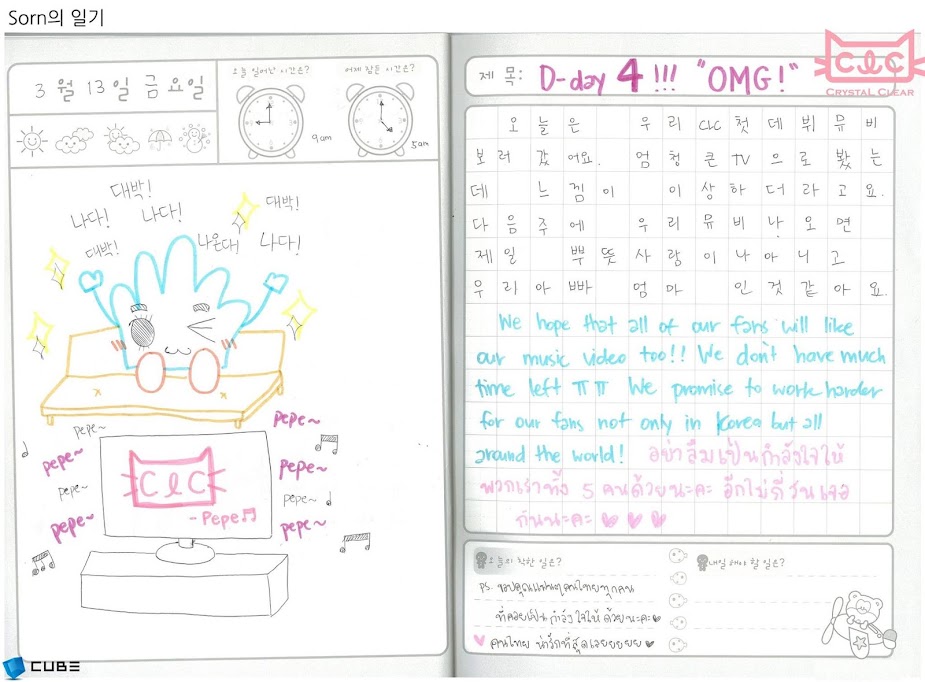 Sorn의 일기
3 월 13 일 금 요일
오늘 일어난 시간은?
어제 잠든 시간은?
9am
5am
대박!
나다! 나다! 대박!
대박! 나온다! 나다!
pepe~
pepe~
pepe~
pepe~
pepe~
pepe~
pepe~
pepe~
CLC
- Pepe♬
CUBE
제 목: D-day 4 !!! "OMG!"
CLC
CRYSTAL CLEAR
오늘은 우리 CLC 첫 데뷔 뮤비
보러 갔어요. 엄청 큰 TV 으로 봤는
데 느낌이 이상하더라고요.
다음주에 우리 뮤비 나오면
제일 뿌뜻 사랑이 나 아니고
우리 아빠 엄마 인것 같아요.
We hope that all of our fans will like
our music video too!! We don't have much
time left ㅠㅠ We promise to work harder
for our fans not only in Korea but all
around the world! อย่าลืมเป็นกำลังใจให้
พวกเราทั้ง 5 คนด้วยนะคะ อีกไม่กี่วันเจอ
กันนะคะ ♥ ♥ ♥
오늘의 착한 일은?
내일 해야 할 일은?
PS. ขอบคุณแฟนๆคนไทยทุกคน
ที่คอยเป็นกำลังใจให้ด้วยนะคะ ♥
♥ คนไทย น่ารักที่สุดเลยยยยย ♥